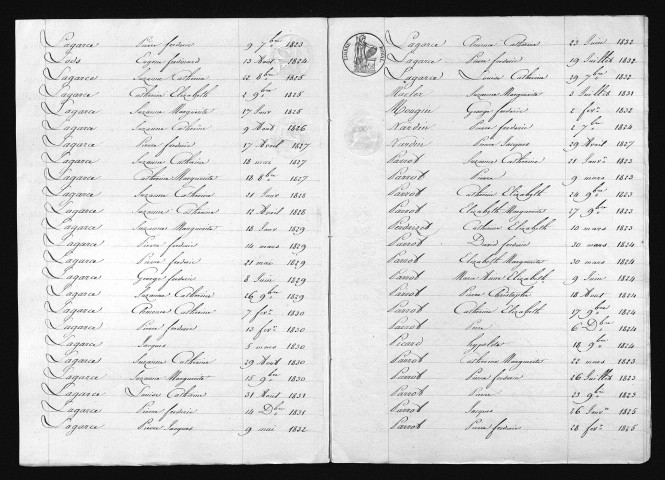 Lagarce Pierre frederic 9 7bre 1823
Lods Eugene ferdinand 13 Aout 1824
Lagarce Suzanne Catherine 22 8bre 1825
Lagarce Catherine Elizabeth 2 9bre 1825
Lagarce Suzanne Marguerite 17 Janr 1825
Lagarce Suzanne Catherine 9 Aout 1826
Lagarce Pierre frederic 17 Avril 1827
Lagarce Suzanne Catherine 18 mai 1827
Lagarce Catherine Marguerite 18 8bre 1827
Lagarce Suzanne Catherine 21 Janr 1828
Lagarce Suzanne Catherine 12 Avril 1828
Lagarce Suzanne Marguerite 18 Janr 1829
Lagarce Pierre frederic 14 mars 1829
Lagarce Pierre frederic 21 mai 1829
Lagarce George frederic 8 Juin 1829
Lagarce Suzanne Catherine 26 9bre 1829
Lagarce Catherine 7 fevr 1830
Lagarce Pierre frederic 13 fevr 1830
Lagarce Jacques 5 mars 1830
Lagarce Suzanne Catherine 29 Aout 1830
Lagarce Suzanne Marguerite 15 9bre 1830
Lagarce Louise Catherine 31 Aout 1831
Lagarce Pierre frederic 14 Dbre 1831
Lagarce Pierre Jacques 9 mai 1832
Lagarce Catherine 23 Juin 1832
Lagarce Pierre frederic 19 Juillet 1832
Lagarce Louise Catherine 29 7bre 1832
Suzanne Marguerite 3 Juillet 1831
Mougin George frederic 2 fevr 1832
Nardin Pierre frederic 2 7bre 1824
Nardin Pierre Jacques 29 Avril 1827
Parrot Suzanne Catherine 21 Janvr 1823
Parrot Pierre 9 mars 1823
Parrot Catherine Elizabeth 24 9bre 1823
Parrot Elizabeth Marguerite 27 9bre 1823
Catherine Elizabeth 10 mars 1823
Parrot David frederic 30 mars 1824
Parrot Elizabeth Marguerite 30 mars 1824
Parrot Marie Anne Elizabeth 9 Juin 1824
Parrot Pierre Christophe 18 Aout 1824
Parrot Catherine Elizabeth 17 9bre 1824
Parrot Pierre 6 Dbre 1824
Picard hypolite 18 9bre 1824
Parrot Catherine Marguerite 22 mars 1823
Parrot Pierre frederic 26 Juillet 1823
Parrot Pierre 23 9bre 1823
Parrot Jacques 26 Janvr 1825
Parrot Pierre frederic 28 fevr 1825